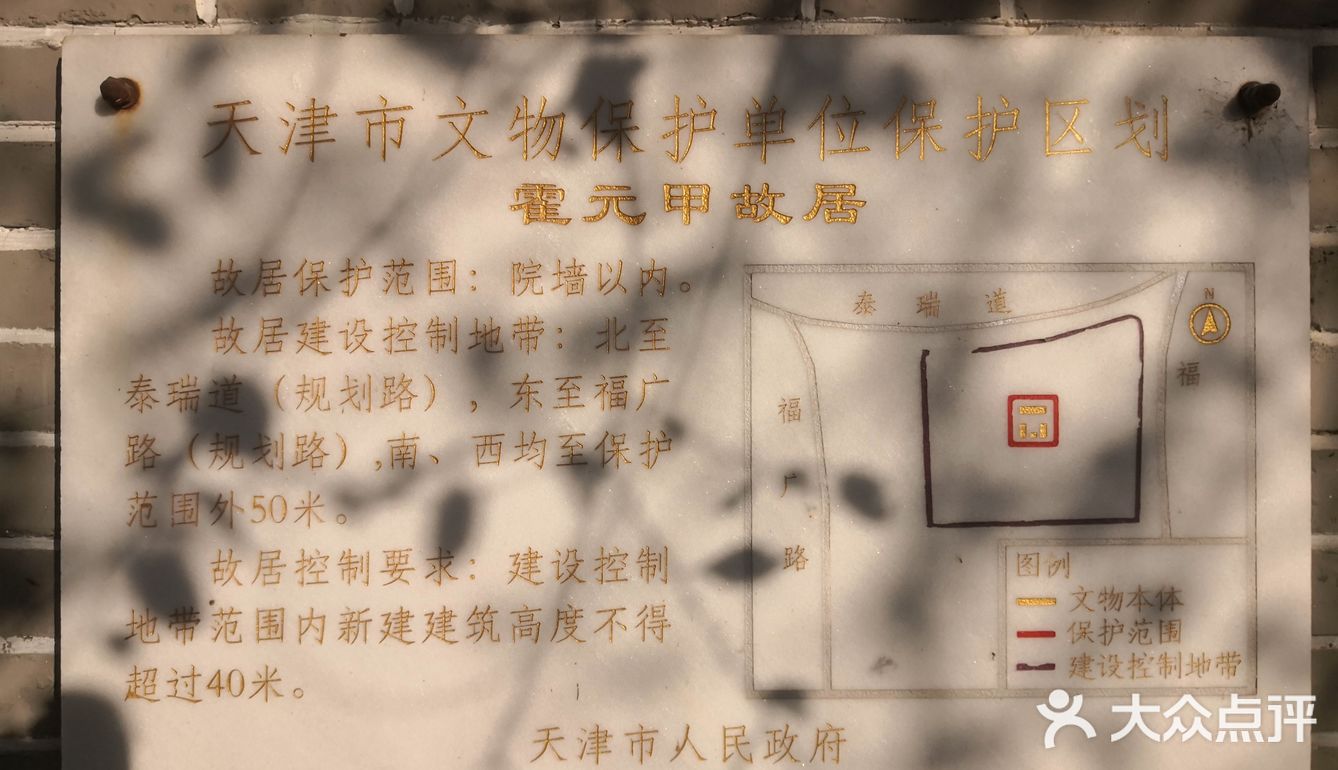 天津市文物保护单位保护区划
霍元甲故居
故居保护范围：院墙以内。
故居建设控制地带：北至
泰瑞道（规划路），东至福广
路（规划路）,南、西均至保护
范围外50米。
故居控制要求：建设控制
地带范围内新建建筑高度不得
超过40米。
天津市人民政府
泰瑞道
N
福
福广路
图例
文物本体
保护范围
建设控制地带
大众点评